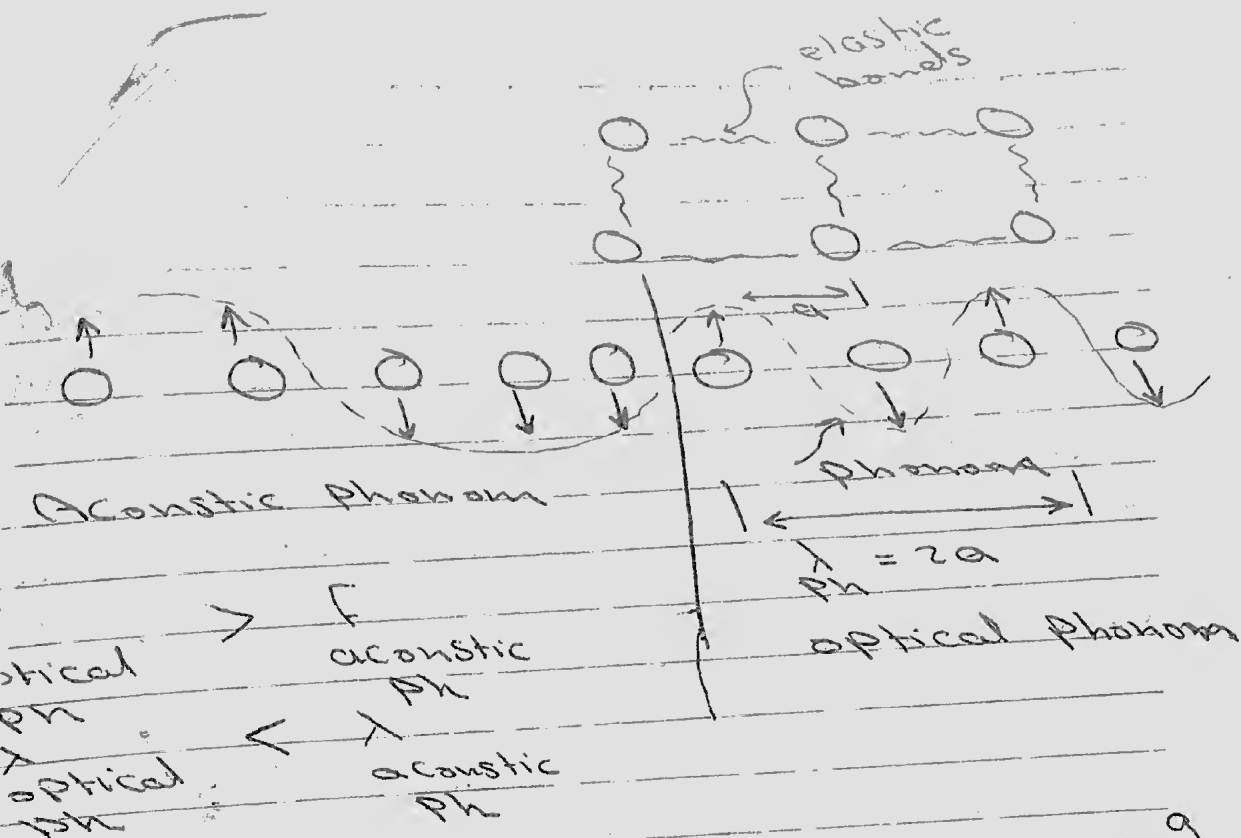 elastic
bonds
a
Aconstic phonom
phonona
λ = 2a
ph
optical phonom
> f
optical acoustic
ph ph
λ < λ
optical acoustic
ph ph
9